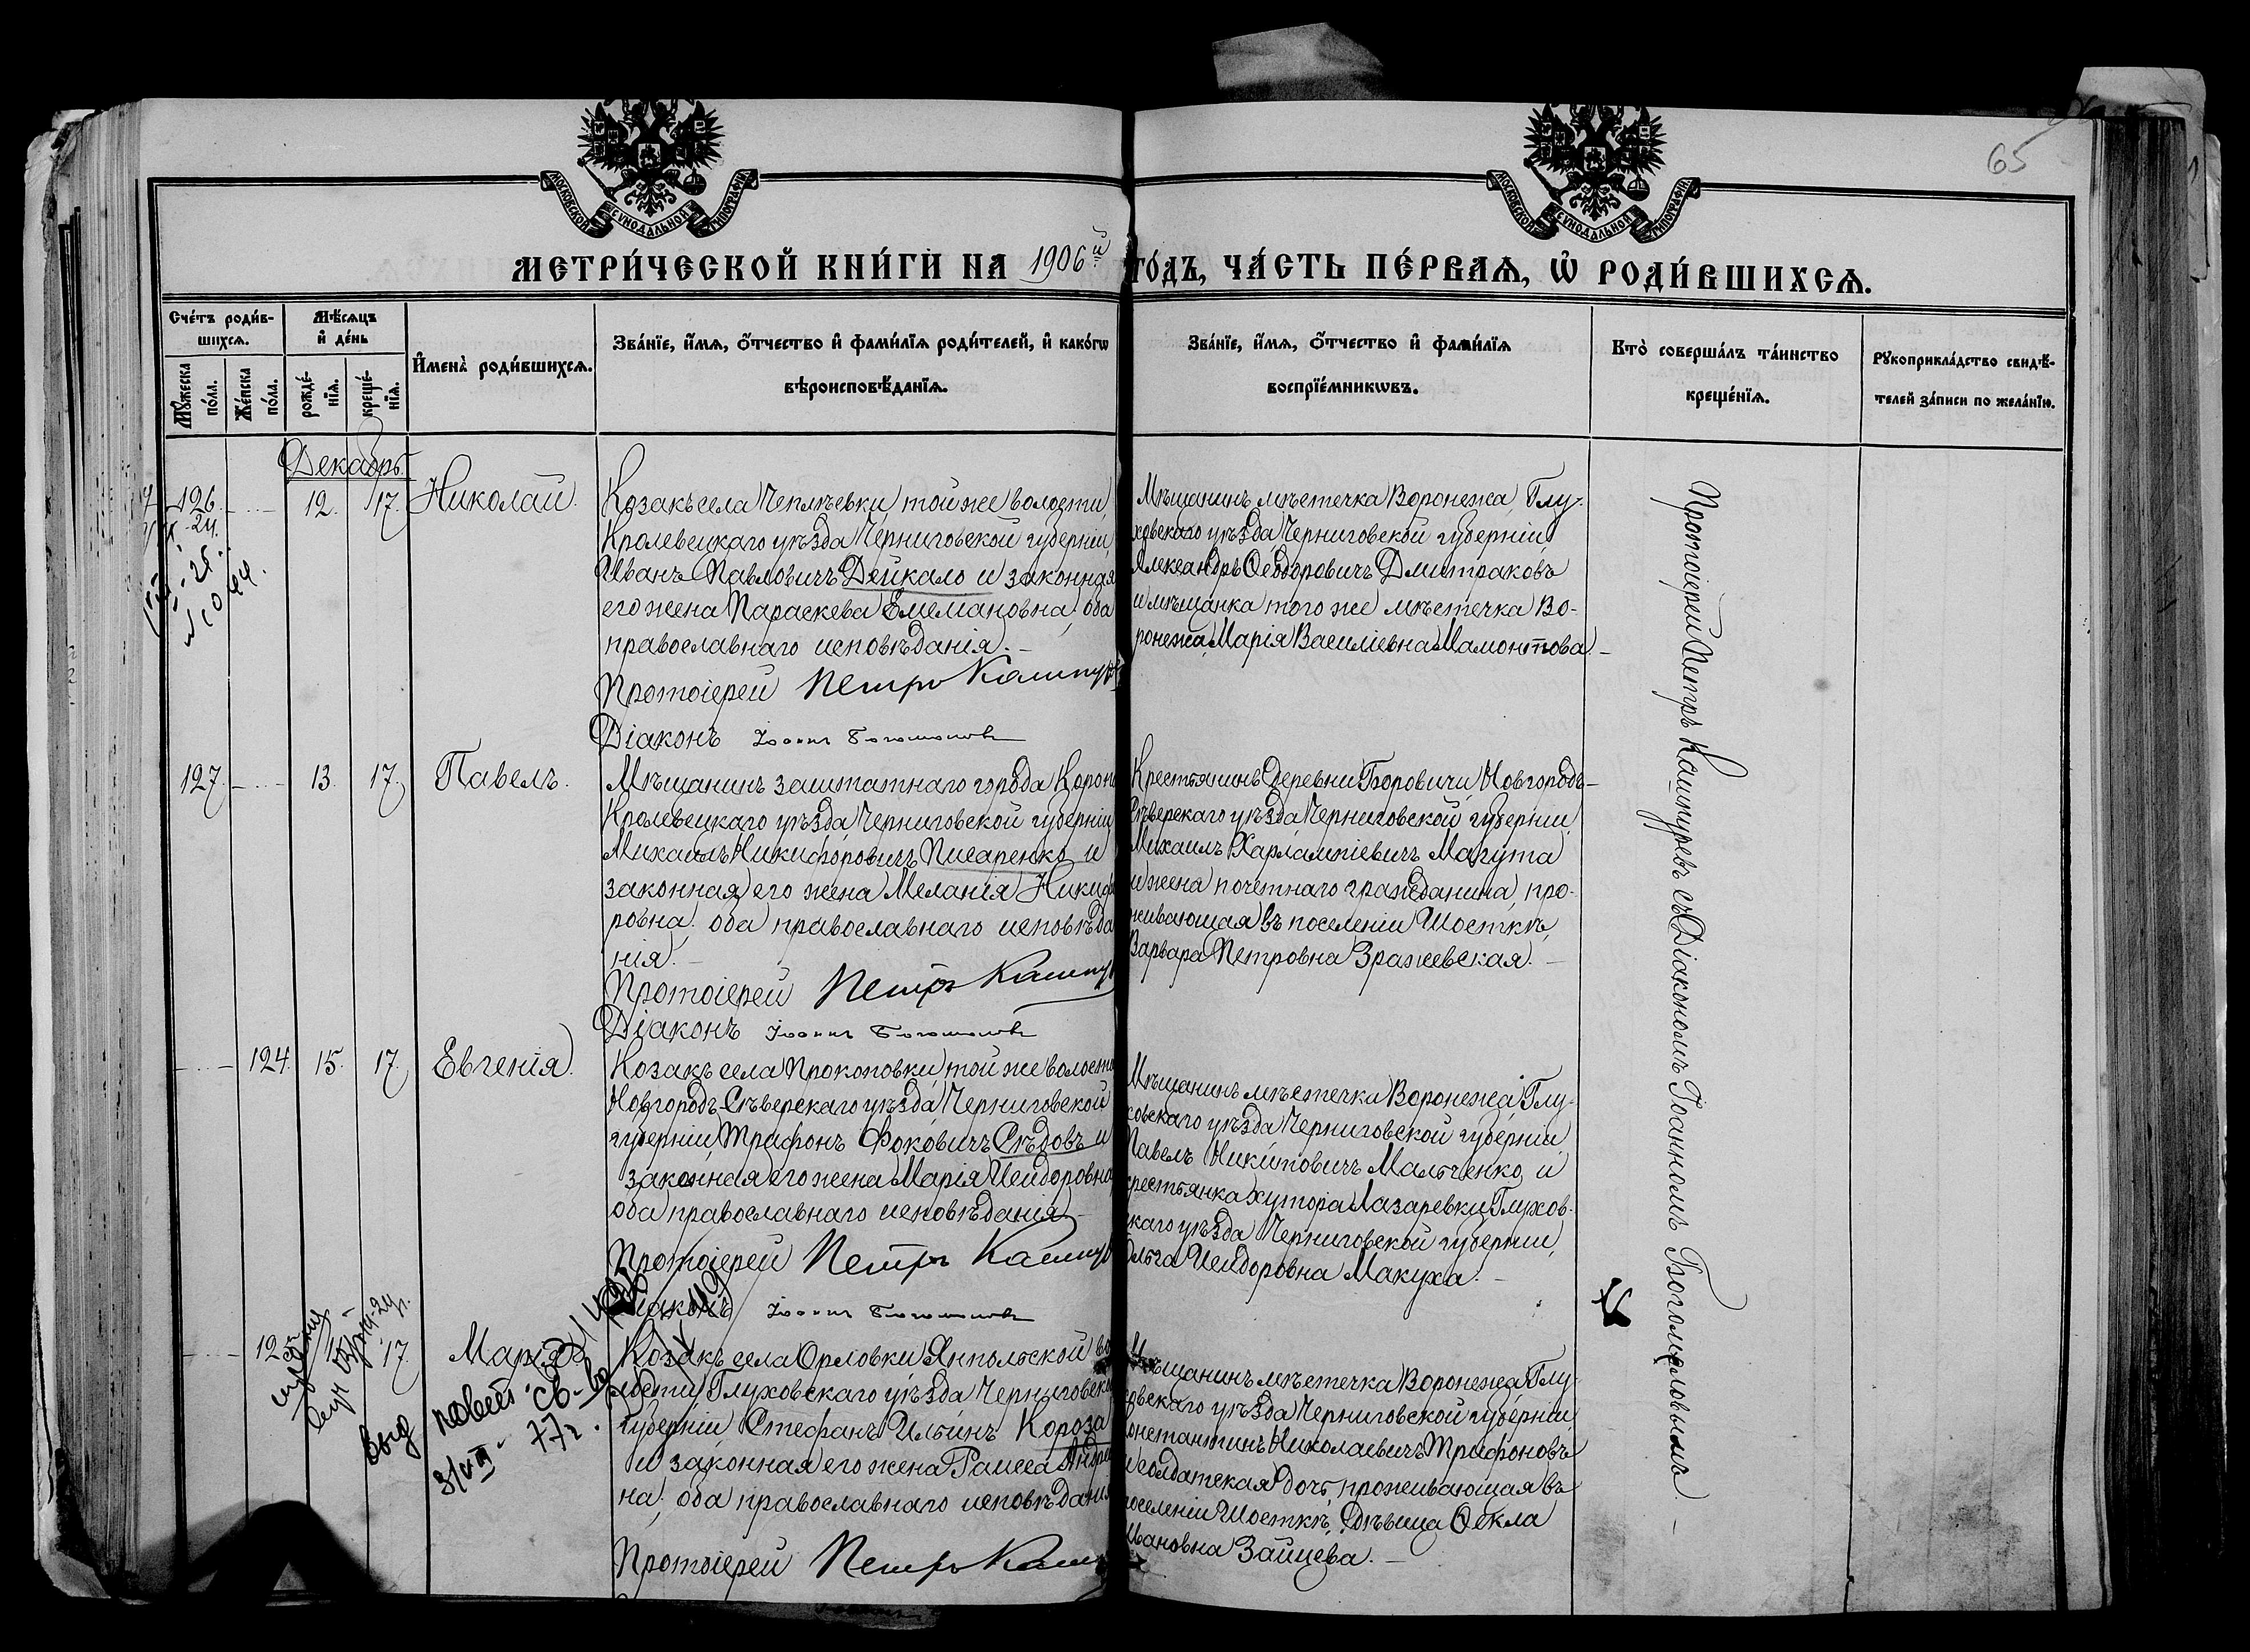 65
МОСКОВСКОЙ СѴНОДАЛЬНОЙ ТИПОГРАФІИ
МОСКОВСКОЙ СѴНОДАЛЬНОЙ ТИПОГРАФІИ
МЕТРИ́ЧЕСКОЙ КНИ́ГИ НА 1906й ГО́ДЪ, ЧА́СТЬ ПЕ́РВАѦ, Ѡ РОДИ́ВШИХСѦ.
Сче́тъ роди́в-
шихсѧ.
Мꙋ́жеска
по́ла.
Же́нска
по́ла.
Мѣ́сѧцъ
и де́нь
рожде́-
нїѧ.
креще́-
нїѧ.
Имена̀ роди́вшихсѧ.
Зва́нїе, и́мѧ, о́тчество и фами́лїѧ роди́телей, и како́гѡ
вѣроисповѣ́данїѧ.
Зва́нїе, и́мѧ, о́тчество и фами́лїѧ
воспрїе́мникѡвъ.
Кто̀ соверша́лъ та́инство
креще́нїѧ.
Рꙋкоприкла́дство свидѣ́-
телей за́писи по жела́нїю.
Декабрь
126. 12. 17. Николай.
Козакъ села Чеплѣевки, той же волости,
Кролевецкаго уѣзда Черниговской губерніи,
Иванъ Павловичъ Дейкало и законная
его жена Параскева Емеліановна, оба
православнаго исповѣданія. —
Протоіерей Петръ
Діаконъ Іоаннъ Богомоловъ
Мѣщанинъ мѣстечка Воронежа, Глу-
ховскаго уѣзда Черниговской губерніи
Александръ Ѳеодоровичъ Дмитраковъ
и мѣщанка того же мѣстечка Во-
ронежа, Марія Василіевна Мамонтова —
127. 13. 17. Павелъ.
Мѣщанинъ заштатнаго города
Кролевецкаго уѣзда Черниговской губерніи
Михаилъ Никифоровичъ Писаренко и
законная его жена Меланія Никифо
ровна, оба православнаго исповѣда
нія. —
Протоіерей Петръ
Діаконъ Іоаннъ Богомоловъ
Крестьянинъ Деревни Боровичи, Новгородъ-
Сѣверскаго уѣзда Черниговской губерніи,
Михаилъ Харлампіевичъ Магута
и жена почетнаго гражданина, про-
живающая въ поселеніи Шосткѣ,
Варвара Петровна Зражевская. —
124. 15. 17. Евгенія.
Козакъ села Прокоповки, той же волости
Новгородъ-Сѣверскаго уѣзда Черниговской
губерніи, Трифонъ Фоковичъ Сѣдовъ и
законная его жена Марія Исидоровна
оба православнаго исповѣданія. —
Протоіерей Петръ
Діаконъ Іоаннъ Богомоловъ
Мѣщанинъ мѣстечка Воронежа, Глу-
ховскаго уѣзда Черниговской губерніи,
Павелъ Никитовичъ Мальченко и
крестьянка хутора Лазаревки Глухов-
скаго уѣзда Черниговской губерніи,
Ольга Исидоровна Макуха. —
17. Марія
выд повест св-во
31/VII 77г.
Козакъ села Орловки Янпольской во
лости Глуховскаго уѣзда Черниговской
губерніи Стефанъ Ильинъ Короза
и законная его жена Раисса Андрее
на, оба православнаго исповѣданія
Протоіерей Петръ
Мѣщанинъ мѣстечка Воронежа, Глу-
ховскаго уѣзда Черниговской губерніи
Константинъ Николаевичъ Трифоновъ
и солдатская дочь, проживающая въ
поселеніи Шосткѣ, дѣвица Ѳекла
Ивановна Зайцева. —
Протоіерей Петръ Кашпуревъ съ Діакономъ Іоанномъ Богомоловымъ. —